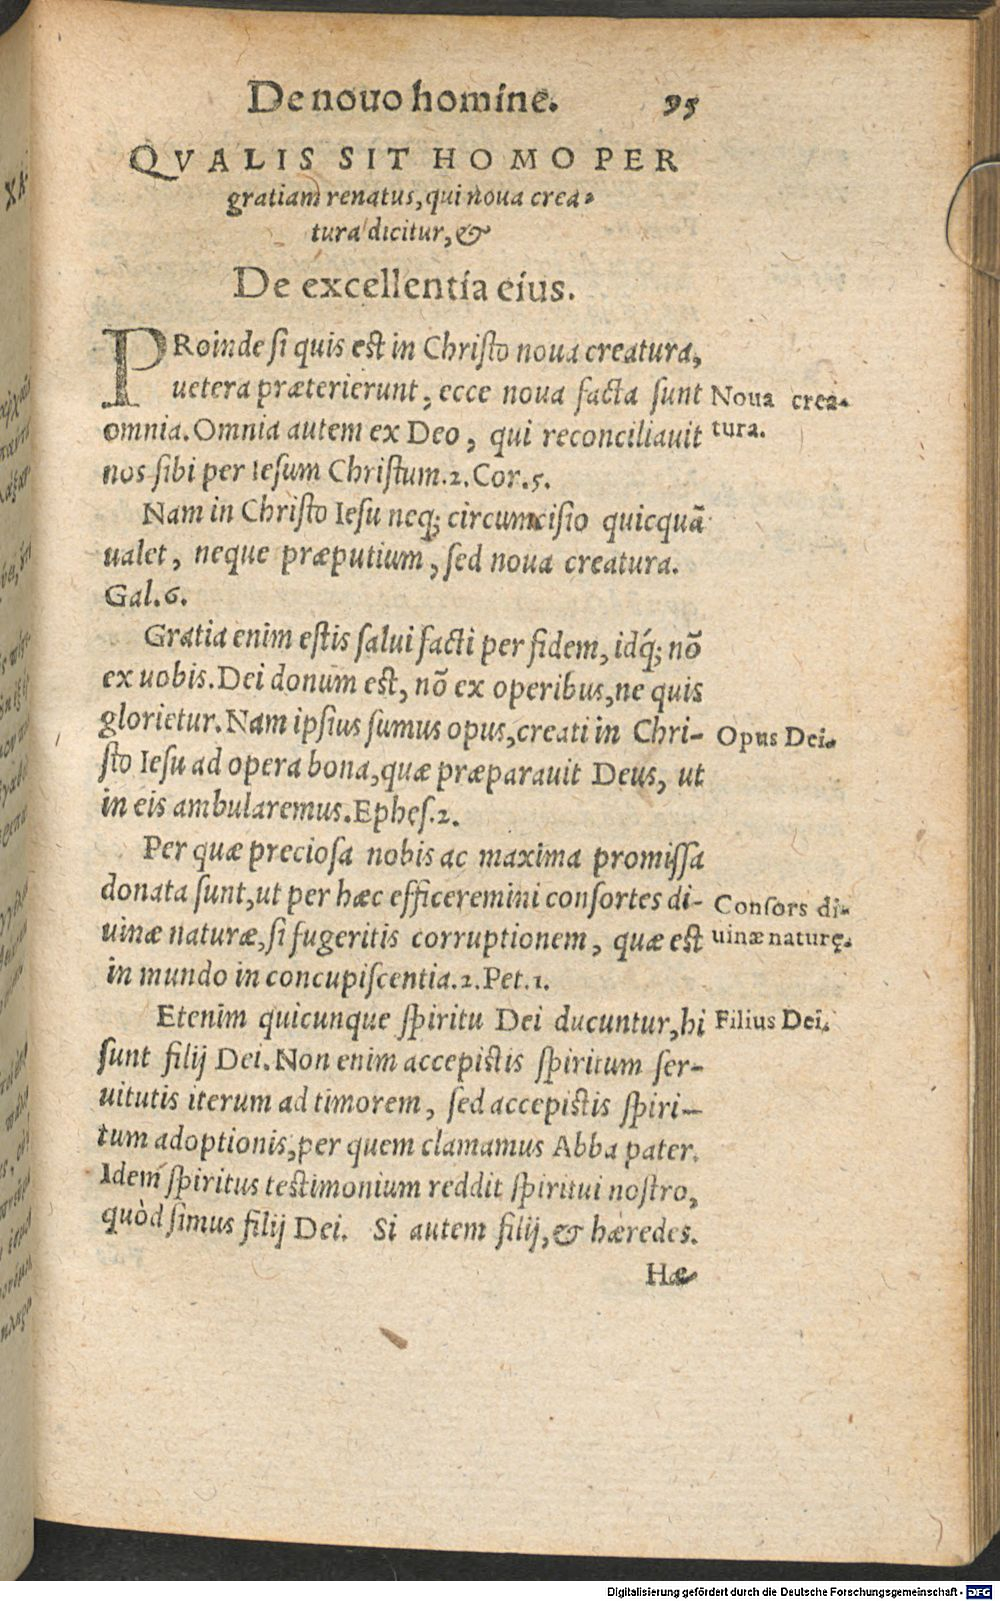 De nouo homine. 95
QVALIS SIT HOMO PER
gratiam renatus, qui noua crea-
tura dicitur, &
De excellentia eius.
PRoinde si quis est in Christo noua creatura,
uetera præterierunt, ecce noua facta sunt
Noua crea-
omnia. Omnia autem ex Deo, qui reconciliauit
tura.
nos sibi per Iesum Christum. 2. Cor. 5.
Nam in Christo Iesu neq; circumcisio quicquā
ualet, neque præputium, sed noua creatura.
Gal. 6.
Gratia enim estis salui facti per fidem, idq́; nō
ex uobis. Dei donum est, nō ex operibus, ne quis
glorietur. Nam ipsius sumus opus, creati in Chri-
Opus Dei.
sto Iesu ad opera bona, quæ præparauit Deus, ut
in eis ambularemus. Ephes. 2.
Per quæ preciosa nobis ac maxima promissa
donata sunt, ut per hæc efficeremini consortes di-
Consors di-
uinæ naturæ, si fugeritis corruptionem, quæ est
uinæ naturę.
in mundo in concupiscentia. 2. Pet. 1.
Etenim quicunque spiritu Dei ducuntur, hi
Filius Dei.
sunt filij Dei. Non enim accepistis spiritum ser-
uitutis iterum ad timorem, sed accepistis spiri-
tum adoptionis, per quem clamamus Abba pater.
Idem spiritus testimonium reddit spiritui nostro,
quòd simus filij Dei. Si autem filij, & hæredes.
Hæ-
Digitalisierung gefördert durch die Deutsche Forschungsgemeinschaft - DFG